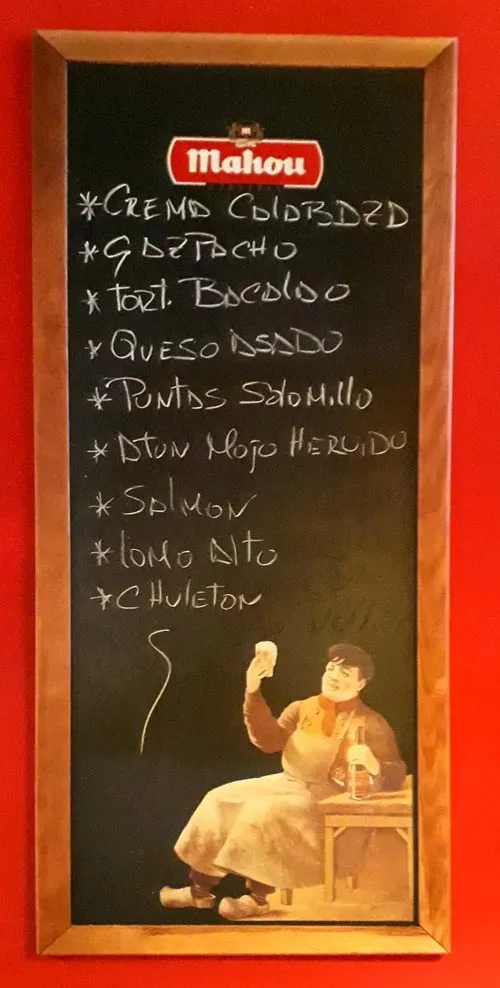 Mahou
*CREMA CALABAZA
*GAZPACHO
*TORT. BACALAO
*QUESO ASADO
*PUNTAS SOLOMILLO
*ATUN MOJO HERVIDO
*SALMON
*LOMO ALTO
*CHULETON